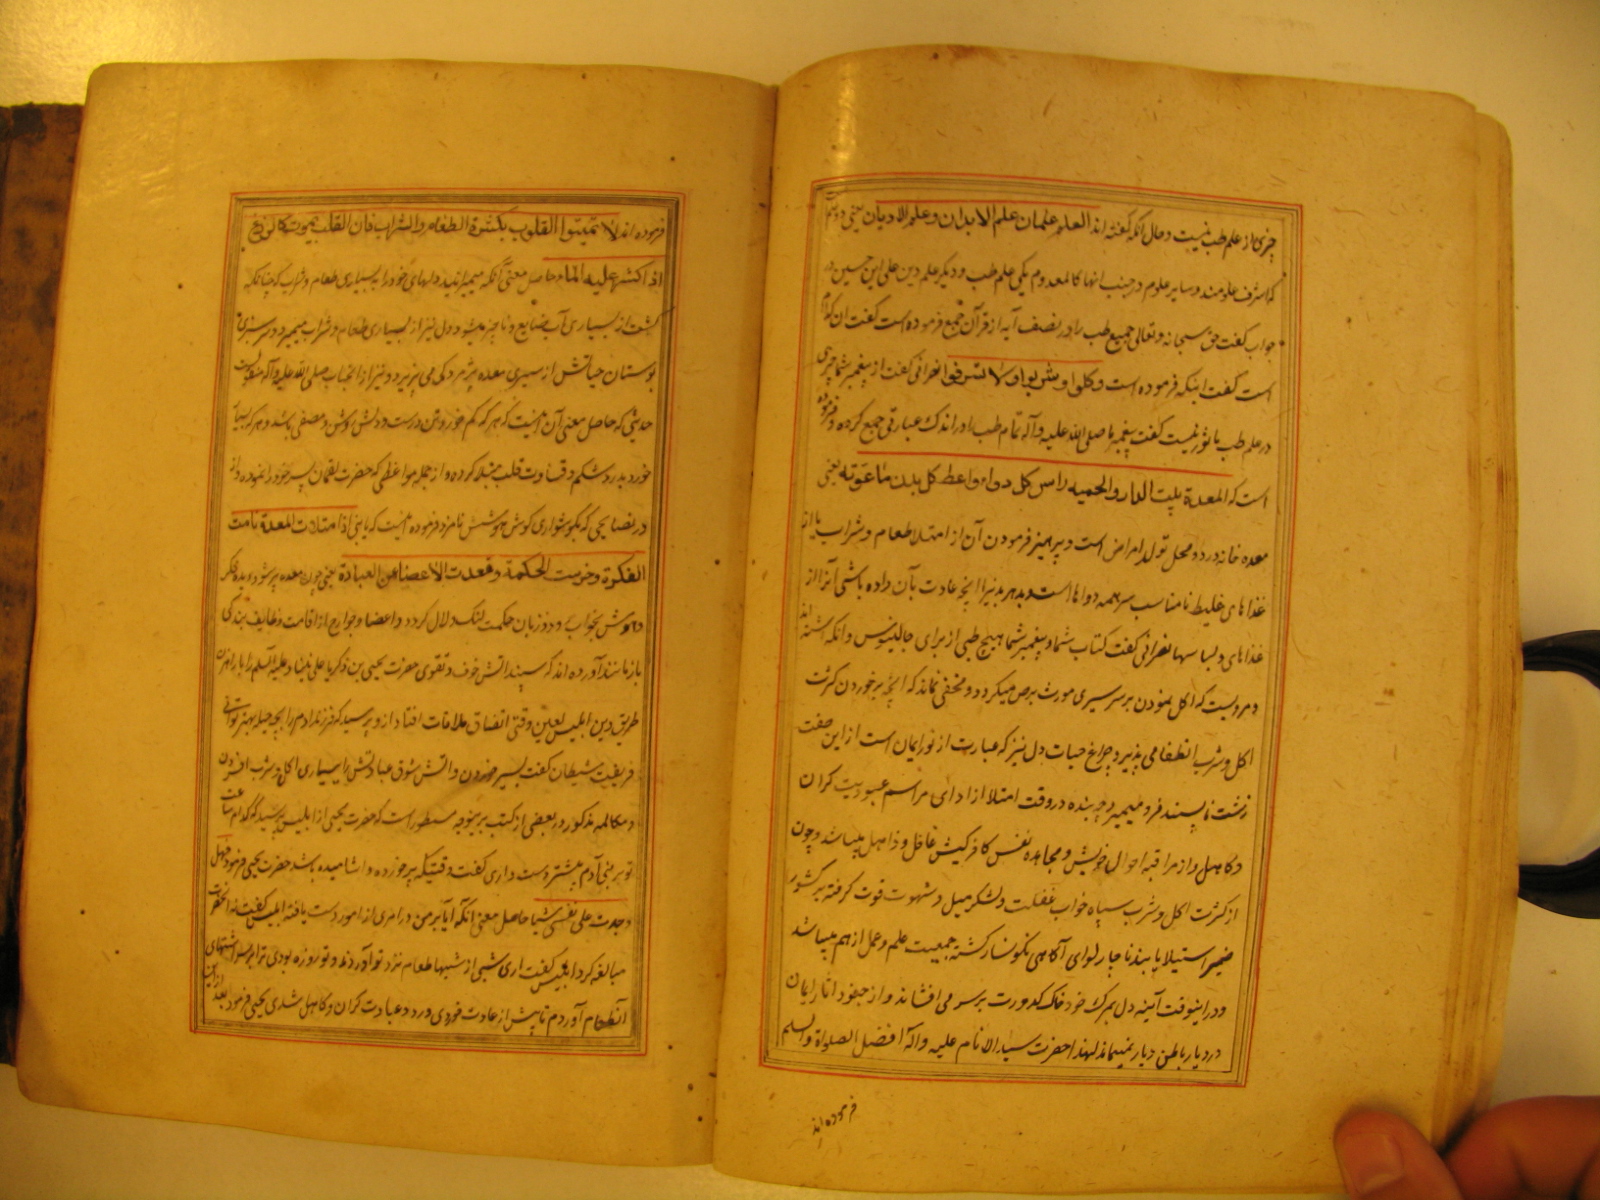 چیزی از علم طب نیست و حال آنکه گفته اند العلم علمان علم الابدان و علم الادیان یعنی دو علم
که اشرف علومند و سایر علوم در جنب انها کالمعدوم یکی علم طب و دیگر علم دین علی ابن حسین در
جواب گفت حق سبحانه و تعالی جمیع طب را در نصف آیه از قرآن جمع فرموده است گفت ان کدام
است گفت اینکه فرموده است و کلوا و اشربوا و لا تسرفوا نصرانی گفت از پیغمبر شما چیزی
در علم طب ماثور نیست گفت پیغمبر ما صلی الله علیه و آله تمام طب را در اندک عبارتی جمع کرده و فرموده
است که المعدة بیت الداء و الحمیه راس کل دواء و اعط کل بدن ما عودته یعنی
معده خانه درد و محل تولد امراض است و پرهیز فرمودن آن از امتلا طعام و شراب یا از
غذاهای غلیظ نامناسب سر همه دواهاست و بدهر بدنیرا انچه عادت بآن داده باشی آنرا از
غذاهای و لباسها نصرانی گفت کتاب شما و پیغمبر شما هیچ طبی از برای جالینوس وانکه اشته اند
و مرویست که اکل نمودن بر سر سیری مورث برص میکردد و مخفی نماند که انچه بر خوردن کثرت
اکل و شرب انطفا می پذیرد چراغ حیات دل نیز که عبارت از نور ایمان است از این صفت
زشت ناپسند فرو میمیرد چه بنده در وقت امتلا از ادای مراسم عبودیت کران
و کاهل و از مراقبه احوال خویش و مجاهده نفس کافر کیش غافل و ذاهل میباشد و چون
از کثرت اکل و شرب سپاه خواب غفلت و لشکر میل و شهوت قوت کرفته بر کشور
ضمیر استیلا یابند ناچار لوای آگاهی نکونسار کشته جمعیت علم و عمل از هم میپاشد
و در اینوقت آینه دل بمرک خود خاک کدورت بر سر می افشاند و از جنود انار ایمان
در دیار باطن دیار نمیماند لهذا حضرت سید الانام علیه و آله افضل الصلواة و السلم
فرموده اند
فرموده اند لا تمیتوا القلوب بکثرة الطعام و الشراب فان القلب یموت کالزرع
اذا کثر علیه الماء حاصل معنی آنکه میمیرانید دلهای خود را به بسیاری طعام و شراب که چنانکه
کشت از بسیاری آب ضایع و ناچیز میشود دل نیز از بسیاری طعام و شراب میمیرد و سرسبزی
بوستان حیاتش از سیری معده پژمردکی می پزیرد و نیز از انجناب صلی الله علیه و آله منقولست
حدیثی که حاصل معنی آن اینست که هر که کم خورد تن درست و دلش روشن و مصفی باشد و هر که بسیار
خورد بدرد شکم و قساوت قلب مبتلا کردد و از جمله مواعظی که حضرت لقمان پسر خود را نموده و از
در نصایحی که بکوشواری کوش هوشش نامزد فرموده اینست که یا بنی اذا امتلات المعدة نامت
الفکرة و خرست الحکمة و قعدت الاعضا عن العبادة یعنی چون معده پر شود دیده فکر
و هوش بخواب رود و زبان حکمت لنک و لال کردد و اعضا و جوارح از اقامت وظایف بندکی
باز ماند آورده اند که سپند اتش خوف و تقوی حضرت یحیی بن ذکریا علی نبینا و علیه السلم را با راهزن
طریق دین ابلیس لعین وقتی اتفاق ملاقات افتاد از و پرسید که فرزند ادم را بچه حیله بهتر توانی
فریفت شیطان گفت بسیر خوردن و اتش شوق عبادتش را بسیاری اکل و شرب افسردن
و مکالمه مذکور در بعضی از کتب برینوجه مسطور است که حضرت یحیی از ابلیس پرسید که کدام ساعت
تو بر بنی آدم بیشتر دست داری گفت وقتیکه پر خورده و اشامیده باشد حضرت یحیی فرمود فهل
وجدت علی نفسی شیا حاصل معنی انکه ایا بر من در امری از امور دست یافته ابلیس گفت نه انحضرت
مبالغه کرد ابلیس گفت اری شبی از شبها طعام نزد تو آوردند و تو روزه بودی ترا بر سر اشتهای
آنطعام آوردم تا بیش از عادت خوردی و در عبادت کران و کاهل شدی یحیی فرمود بعد از این